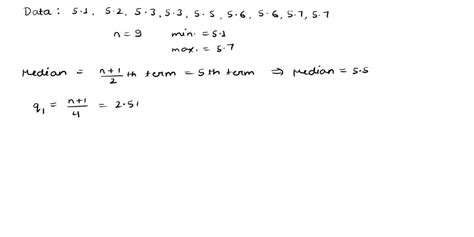 Data : 5.1, 5.2, 5.3, 5.3, 5.5, 5.6, 5.6, 5.7, 5.7
n = 9 min. = 5.1
max. = 5.7
Median = n+1/2 th term = 5th term ⇒ Median = 5.5
q1 = n+1/4 = 2.51